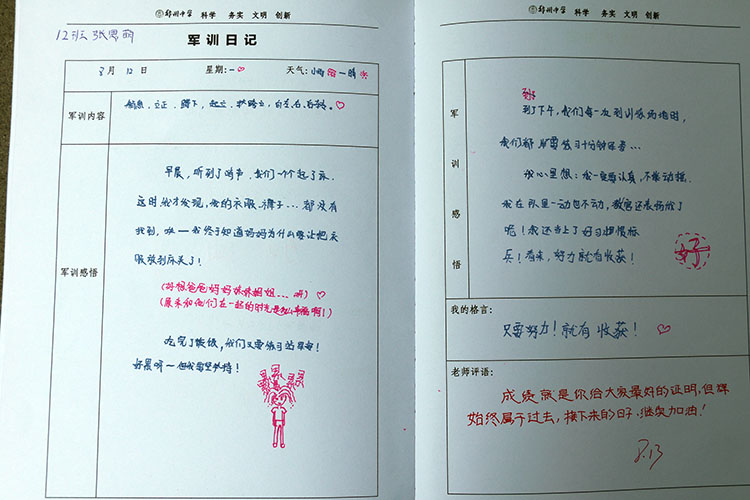 郑州中学 科学 务实 文明 创新
12班 张思雨
军训日记
3月 12日 星期:一 天气:小雨 一晴
军训内容
稍息、立正、蹲下、起立、跨立、向左右看齐。
军训感悟
早晨,听到了哨声,我们一个个起了床,
这时我才发现,我的衣服、裤子...都没有
找到,唉—我终于知道妈妈为什么要让把衣
服放到床头了!
(好想爸爸妈妈妹妹姐姐...啊)
(原来和他们在一起的时光是如此幸福啊!)
吃完了晚饭,我们又要练习站军姿!
好累呀—但我要坚持!
郑州中学 科学 务实 文明 创新
军训感悟
到了下午,我们每一次到训练场地时,
我们都要练习十分钟军姿...
我心里想:我一定要认真,不能动摇。
我在队里一动也不动,教官还表扬我了
呢!我还当上了好习惯标
兵!看来,努力就有收获!
好
我的格言:
只要努力!就有收获!
老师评语:
成绩就是你给大家最好的证明,但辉
始终属于过去,接下来的日子.继续加油!
3.13